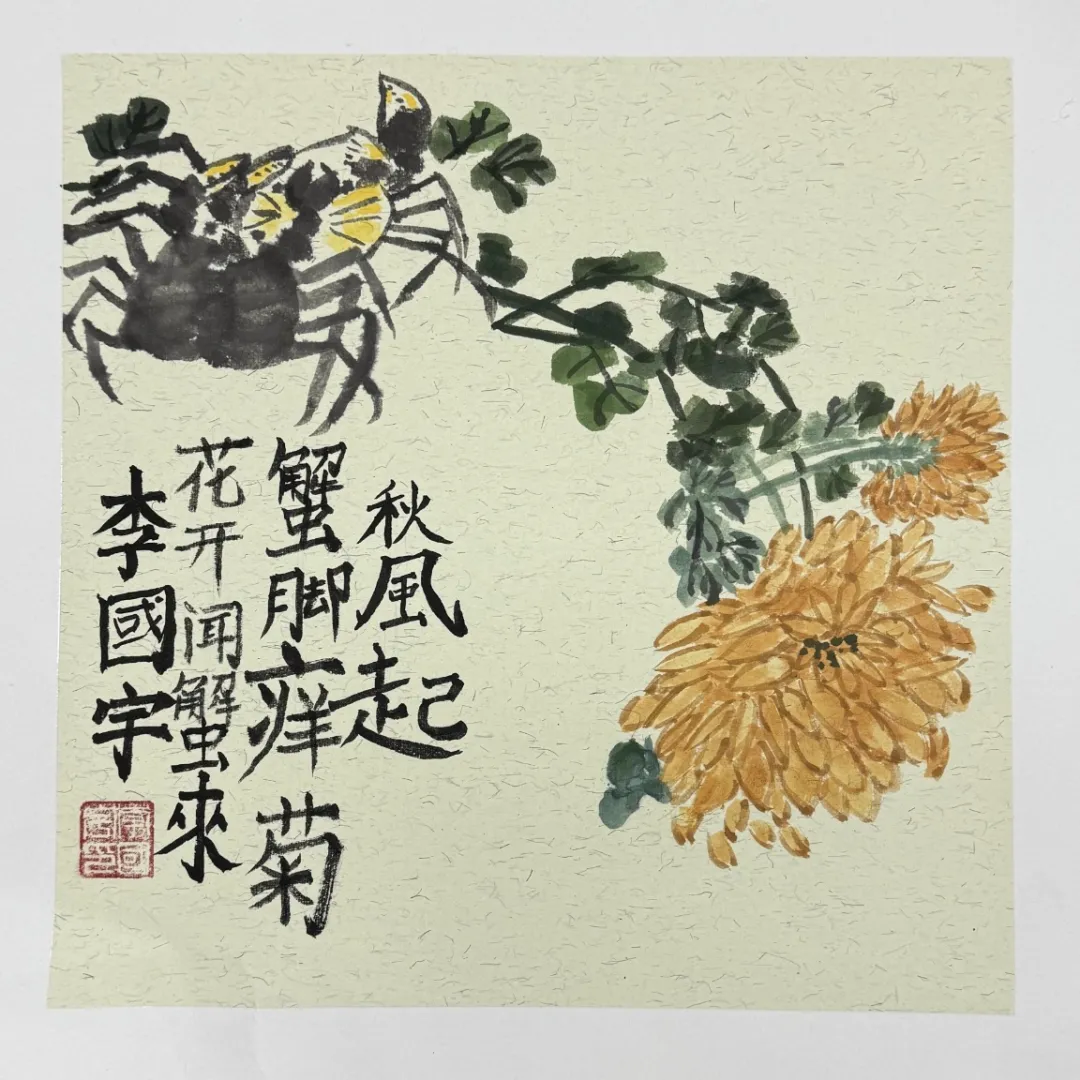 秋風起
蟹脚痒 菊
花开闻蟹來
李國宇